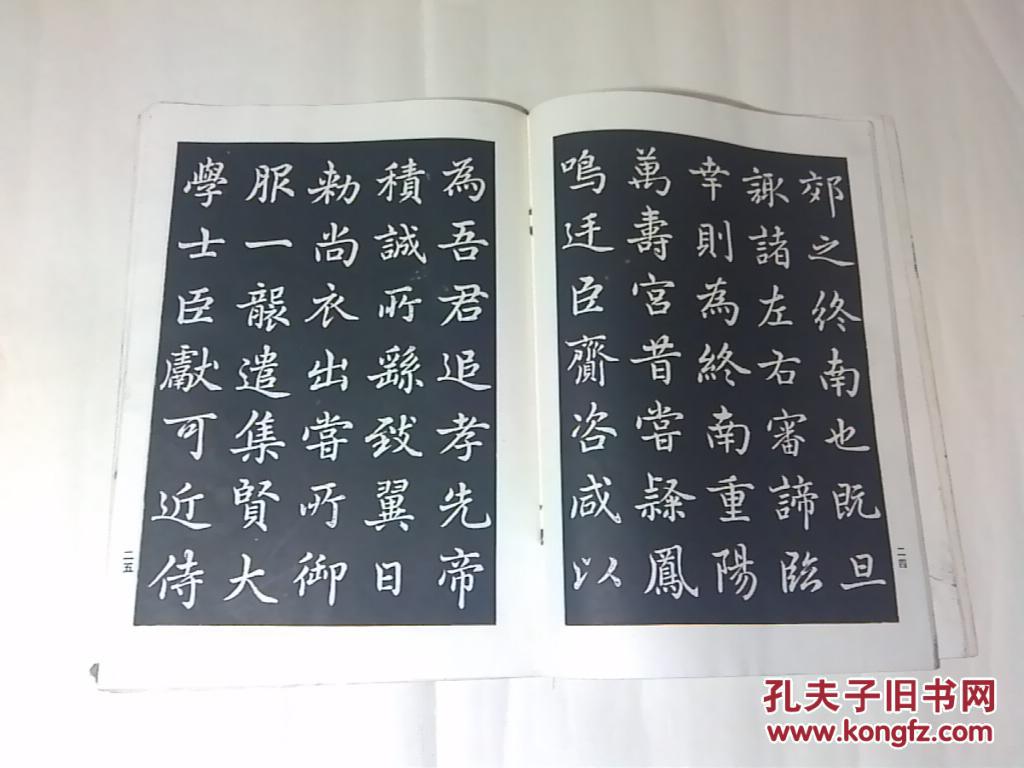 郊之終南也既旦
諏諸左右審諦臨
幸則為終南重陽
萬壽宮昔嘗隸鳳
鳴廷臣齎咨咸以
二四
為吾君追孝先帝
積誠所繇致翼日
勅尚衣出嘗所御
服一襲遣集賢大
學士臣獻可近侍
二五
孔夫子旧书网
www.kongfz.com